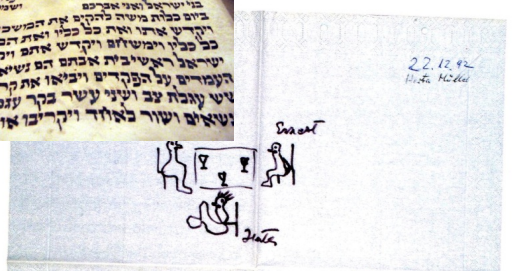 בני ישראל ואני אברכם
ביום כלות משה להקים את המשכ
ויקדש אתו ואת כל כליו ואת המ
כל כליו וימשחם ויקדש אתם וי
ישראל ראשי בית אבתם הם נשיא
העמדים על הפקדים ויביאו את קר
שש עגלת צב ושני עשר בקר עגל
נשיאים ושור לאחד ויקריבו או
22.12.92
Herta Müller